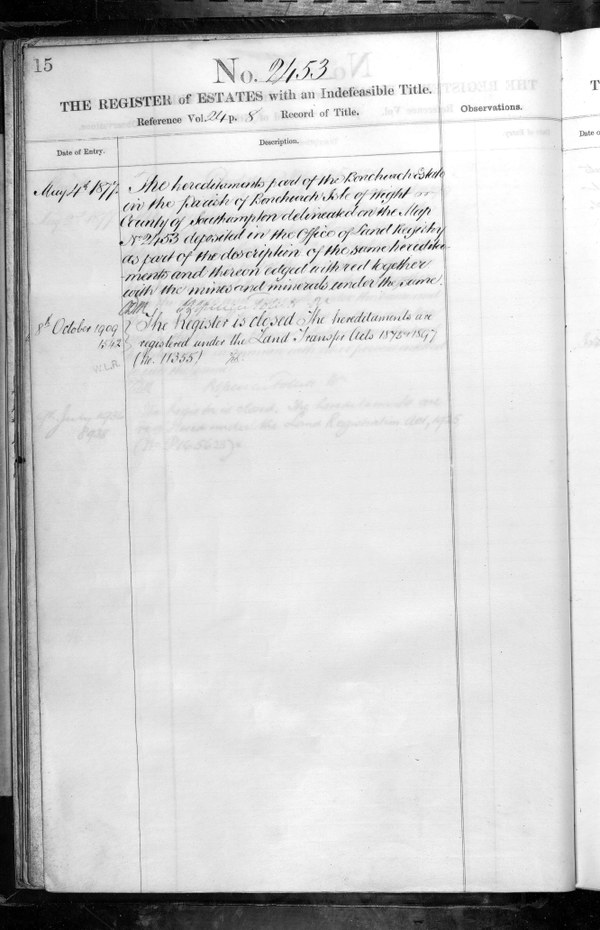 15
No. 2453
THE REGISTER of ESTATES with an Indefeasible Title.
Reference Vol. 24 p. 8 Record of Title.
Observations.
Date of Entry.
Description.
May 4th 1877.
The hereditaments part of the Bonchurch Estate
in the parish of Bonchurch Isle of Wight
County of Southampton delineated on the Map
No 2453 deposited in the Office of Land Registry
as part of the description of the same heredita-
-ments and thereon edged with red together
with the mines and minerals under the same.
8th October 1909
1562
The Register is closed The hereditaments are
registered under the Land Transfer Acts 1875 & 1897
(No. 11355)